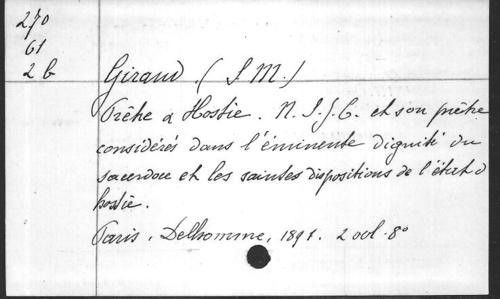 270
61
2 b
Giraud (S. M.)
Prêtre & Hostie. N. S. J. C. et son prêtre
considérés dans l'éminente dignité du
sacerdoce et les saintes dispositions de l'état d
hostie.
Paris, Delhomme, 1891. 2 vol. 8°